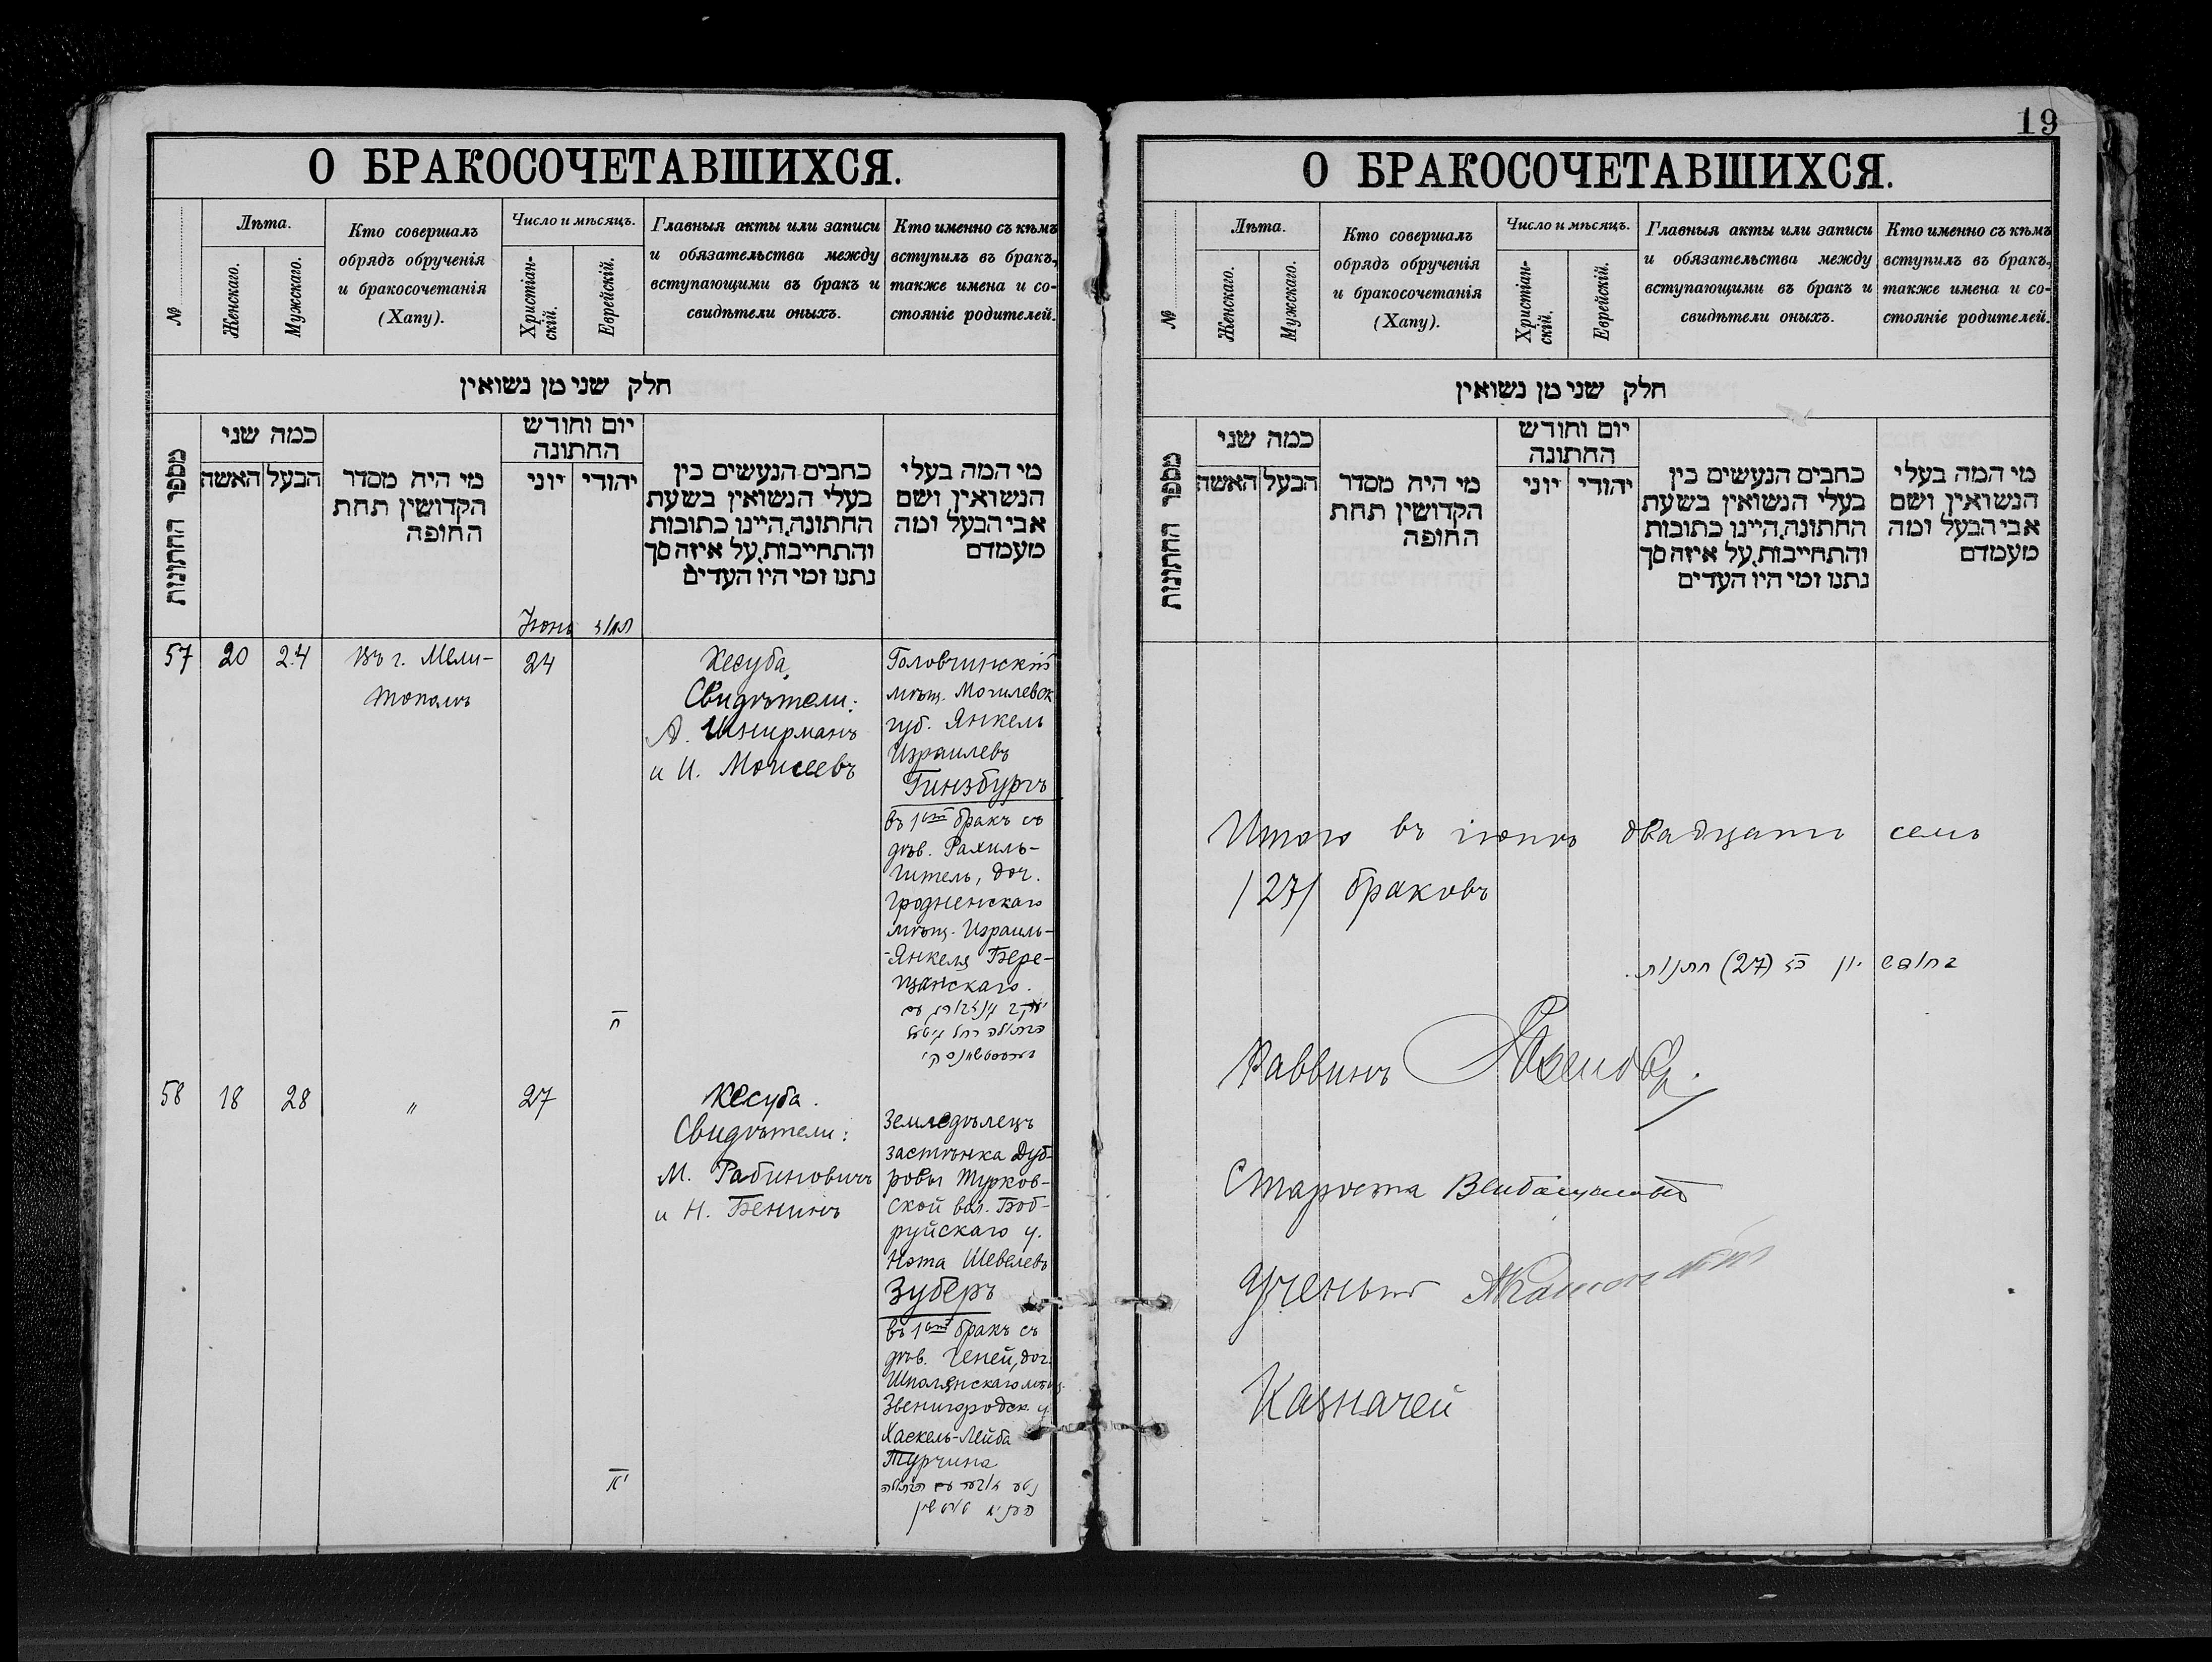 О БРАКОСОЧЕТАВШИХСЯ.
№
Лѣта.
Женскаго.
Мужскаго.
Кто совершалъ
обрядъ обрученія
и бракосочетанія
(Хапу).
Число и мѣсяцъ.
Христіан-
скій.
Еврейскій.
Главныя акты или записи
и обязательства между
вступающими въ бракъ и
свидѣтели оныхъ.
Кто именно съ кѣмъ
вступилъ въ бракъ,
также имена и со-
стояніе родителей.
חלק שני מן נשואין
מספר החתונות
כמה שני
האשה
הבעל
מי היה מסדר
הקדושין תחת
החופה
יום וחודש
החתונה
יוני
יהודי
כתבים הנעשים בין
בעלי הנשואין בשעת
החתונה, היינו כתובות
והתחייבות, על איזה סך
נתנו ומי היו העדים
מי המה בעלי
הנשואין ושם
אבי הבעל ומה
מעמדם
Іюнь תמוז
57
20
24
Въ г. Мели-
тополѣ
24
ח
Кесуба,
Свидѣтели:
А. Шнирманъ
и И. Моисеевъ
Головчинскій
мѣщ. Могилевск
губ. Янкель
Израилевъ
Гинзбургъ
въ 1ый бракъ съ
дѣв. Рахиль-
Гитель, доч.
Гродненскаго
мѣщ. Израиль-
-Янкеля Бере-
щанскаго.
יעקב גינזבורג עם
הבתולה רחל גיטעל
58
18
28
"
27
יא
Кесуба.
Свидѣтели:
М. Рабиновичъ
и Н. Бенинъ
Земледѣлецъ
застѣнка Дуб-
ровы Турков-
ской вол. Боб-
руйскаго у.
Нота Шевелевъ
Зуберъ
въ 1ый бракъ съ
дѣв. Геней, доч.
Шполянскаго мѣщ.
Звенигородск. у.
Хаскель-Лейба
Турчина
נטע זובער עם הבתולה
העניא טורטשין
19
О БРАКОСОЧЕТАВШИХСЯ.
№
Лѣта.
Женскаго.
Мужскаго.
Кто совершалъ
обрядъ обрученія
и бракосочетанія
(Хапу).
Число и мѣсяцъ.
Христіан-
скій.
Еврейскій.
Главныя акты или записи
и обязательства между
вступающими въ бракъ и
свидѣтели оныхъ.
Кто именно съ кѣмъ
вступилъ въ бракъ,
также имена и со-
стояніе родителей.
חלק שני מן נשואין
מספר החתונות
כמה שני
האשה
הבעל
מי היה מסדר
הקדושין תחת
החופה
יום וחודש
החתונה
יוני
יהודי
כתבים הנעשים בין
בעלי הנשואין בשעת
החתונה, היינו כתובות
והתחייבות, על איזה סך
נתנו ומי היו העדים
מי המה בעלי
הנשואין ושם
אבי הבעל ומה
מעמדם
Итого въ іюнѣ двадцать семь
/27/ браковъ
כז (27) חתונות.
Раввинъ
Староста
Ученый
Казначей